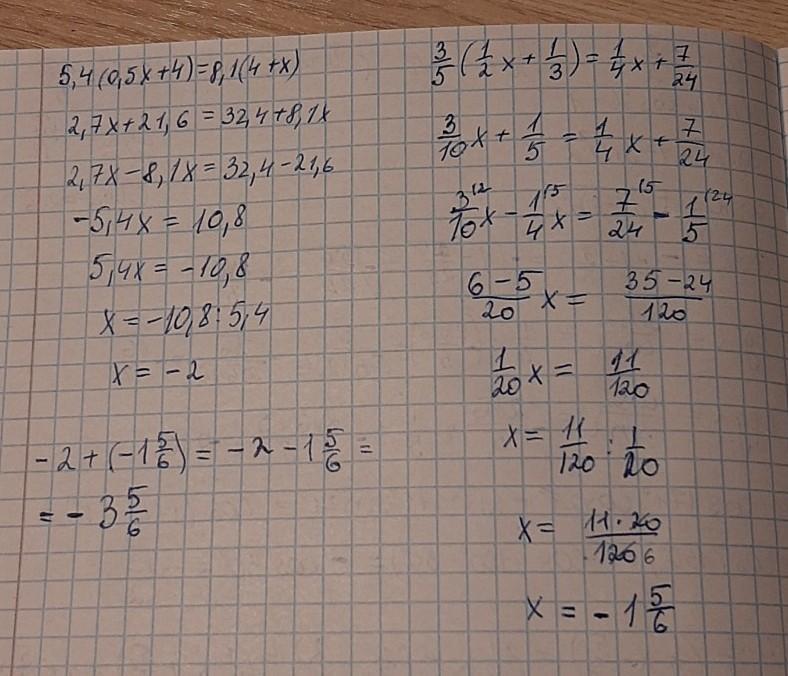 5,4(0,5x+4)=8,1(4+x)
2,7x+21,6=32,4+8,1x
2,7x-8,1x=32,4-21,6
-5,4x=10,8
5,4x=-10,8
x=-10,8:5,4
x=-2
-2+(-1 5/6)=-2-1 5/6=
=-3 5/6
3/5(1/2x+1/3)=1/4x+7/24
3/10x+1/5=1/4x+7/24
3(2/10x-1(5/4x=7(5/24-1(24/5
6-5/20x=35-24/120
1/20x=11/120
x=11/120:1/20
x=11·20/120 6
x=-1 5/6